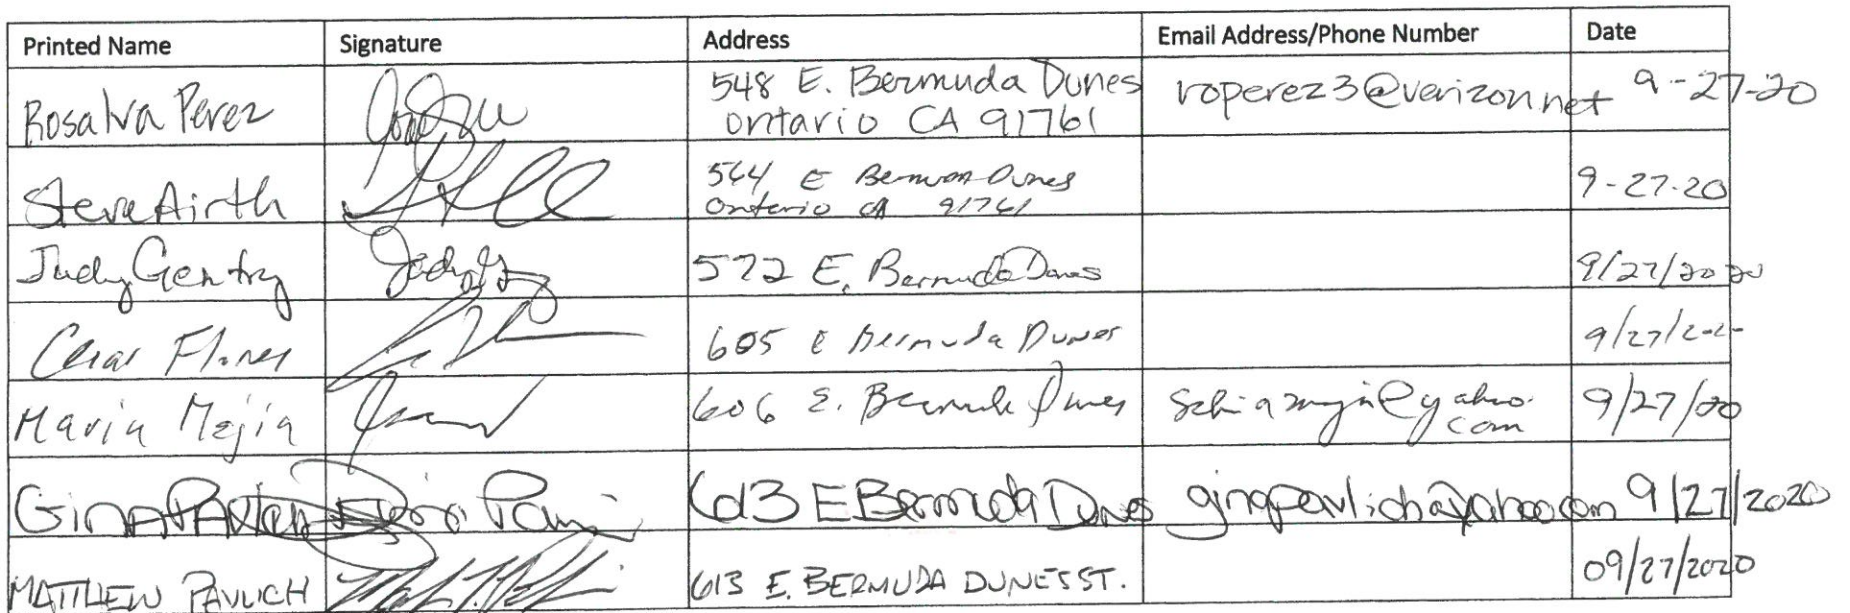 Printed Name Signature Address Email Address/Phone Number Date
Rosalva Perez 548 E. Bermuda Dunes roperez3@verizon.net 9-27-20
Ontario CA 91761
Steve Airth 564 E Bermuda Dunes 9-27-20
Ontario CA 91761
Judy Gentry 572 E. Bermuda Dunes 9/27/2020
Cesar Flores 605 E Bermuda Dunes 9/27/2020
Maria Mejia 606 E. Bermuda Dunes 9/27/20
Gina Pavlich 613 E Bermuda Dunes ginapavlich@yahoo.com 9/27/2020
MATTHEW PAVLICH 613 E. BERMUDA DUNES ST. 09/27/2020